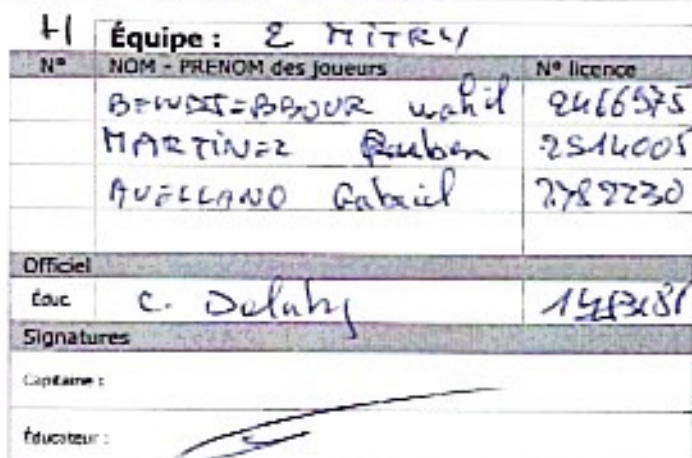 H Équipe : 2 MITRY
N° NOM - PRENOM des joueurs N° licence
wahil 2466975
MARTINEZ Ruben 2514005
AVELLANO Gabriel 2782230
Officiel
Éduc C.
Signatures
Capitaine :
Éducateur :